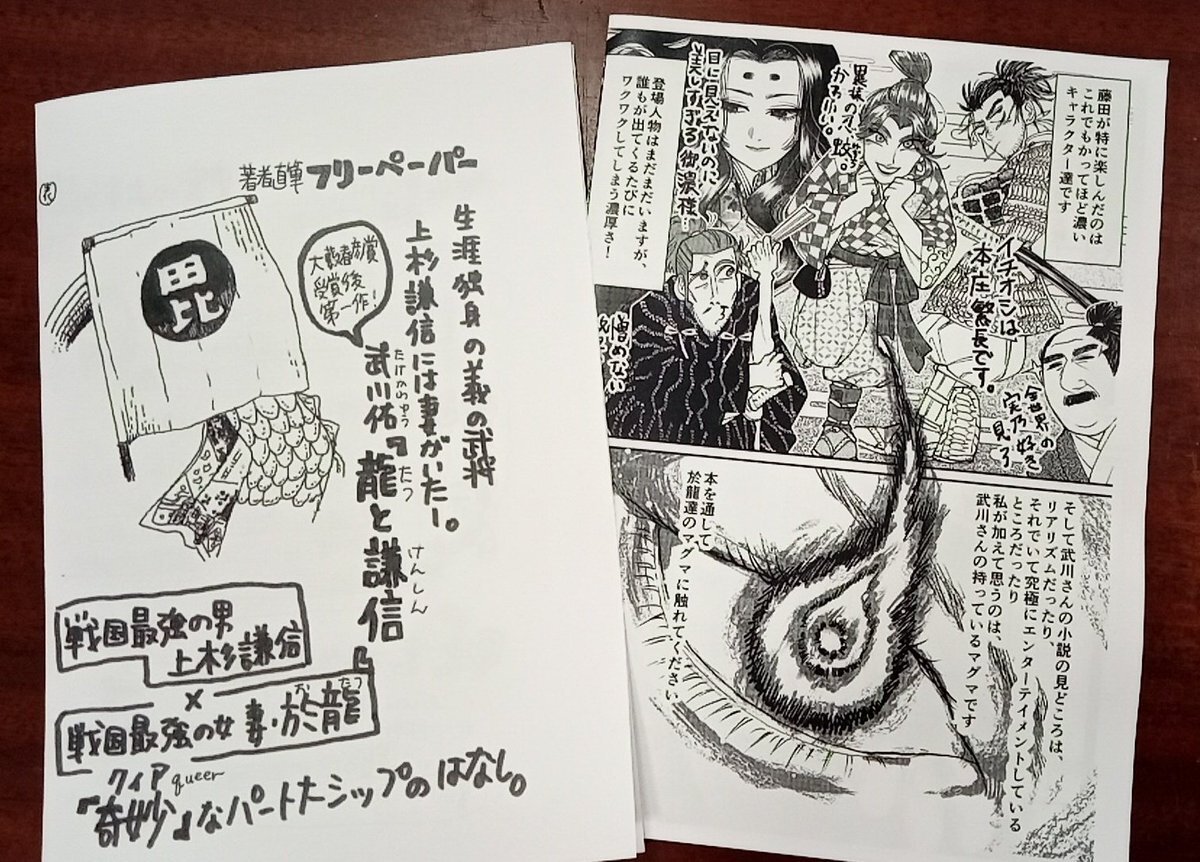 表
著者直筆フリーペーパー
毘
生涯独身の義の武将
上杉謙信には妻がいたー。
大藪春彦賞
受賞後
第一作!
武川佑『龍と謙信』
たけかわゆう
たつ
けんしん
戦国最強の男
上杉謙信
×
戦国最強の女 妻・於龍
お たつ
クィア queer
『奇妙』なパートナーシップのはなし。
藤田が特に楽しんだのは
これでもかってほど濃い
キャラクター達です
イチオシは
本庄繁長です。
かわいい。
目に見えないのに
美しすぎる御濃種…
登場人物はまだまだいますが、
誰もが出てくるたびに
ワクワクしてしまう濃厚さ!
憎めない
全世界の
実乃好き
見ろ
そして武川さんの小説の見どころは、
リアリズムだったり、
それでいて究極にエンターテイメントしている
ところだったり
私が加えて思うのは、
武川さんの持っているマグマです
本を通して
於龍達のマグマに触れてください